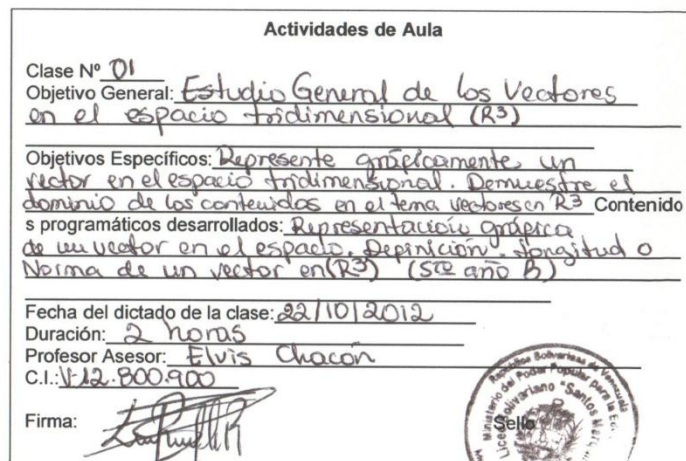 Actividades de Aula
Clase Nº 01
Objetivo General: Estudio General de los Vectores
en el espacio tridimensional (R3)
Objetivos Específicos: Represente gráficamente un
vector en el espacio tridimensional. Demuestre el
dominio de los contenidos en el tema vectores en R3 Contenido
s programáticos desarrollados: Representación gráfica
de un vector en el espacio. Definición. Longitud o
Norma de un vector en (R3) (5to año B)
Fecha del dictado de la clase: 22/10/2012
Duración: 2 horas
Profesor Asesor: Elvis Chacón
C.I.: V-12.800.900
Firma:
Sello
República Bolivariana de Venezuela
Ministerio del Poder Popular para la
Liceo Bolivariano "Santos